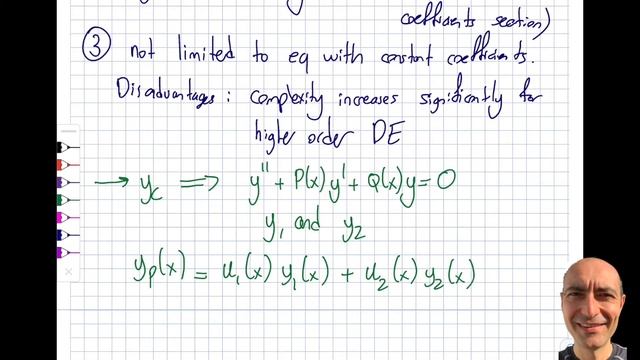 coefficients section)
③ not limited to eq with constant coefficients.
Disadvantages : complexity increases significantly for
higher order DE
→ yc ⟹ y'' + P(x) y' + Q(x) y = 0
y₁ and y₂
yp(x) = u₁(x) y₁(x) + u₂(x) y₂(x)